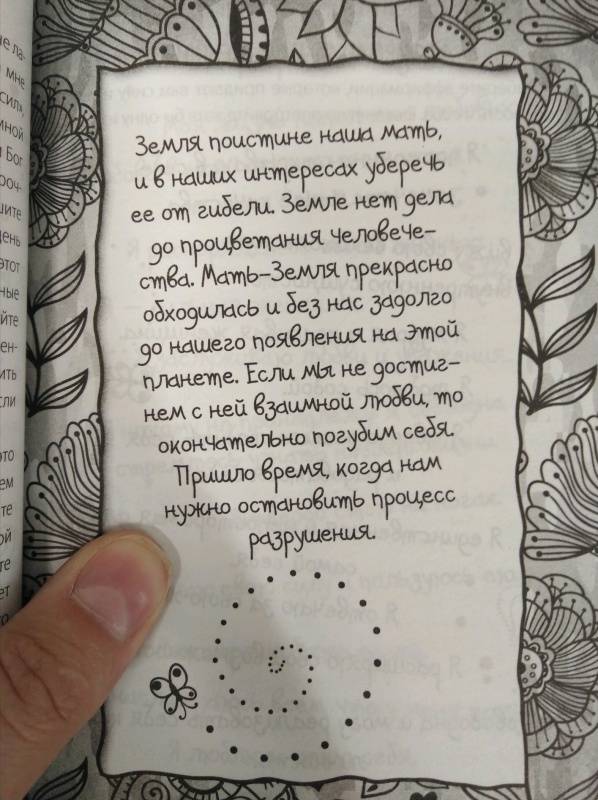 не ла-
мне
сил»,
мной
Бог
роч-
шите
день
этот
ные
йте
ен-
ить
сли
это
ем
те
ой
те
ет
Земля поистине наша мать,
и в наших интересах уберечь
ее от гибели. Земле нет дела
до процветания человече-
ства. Мать-Земля прекрасно
обходилась и без нас задолго
до нашего появления на этой
планете. Если мы не достиг-
нем с ней взаимной любви, то
окончательно погубим себя.
Пришло время, когда нам
нужно остановить процесс
разрушения.